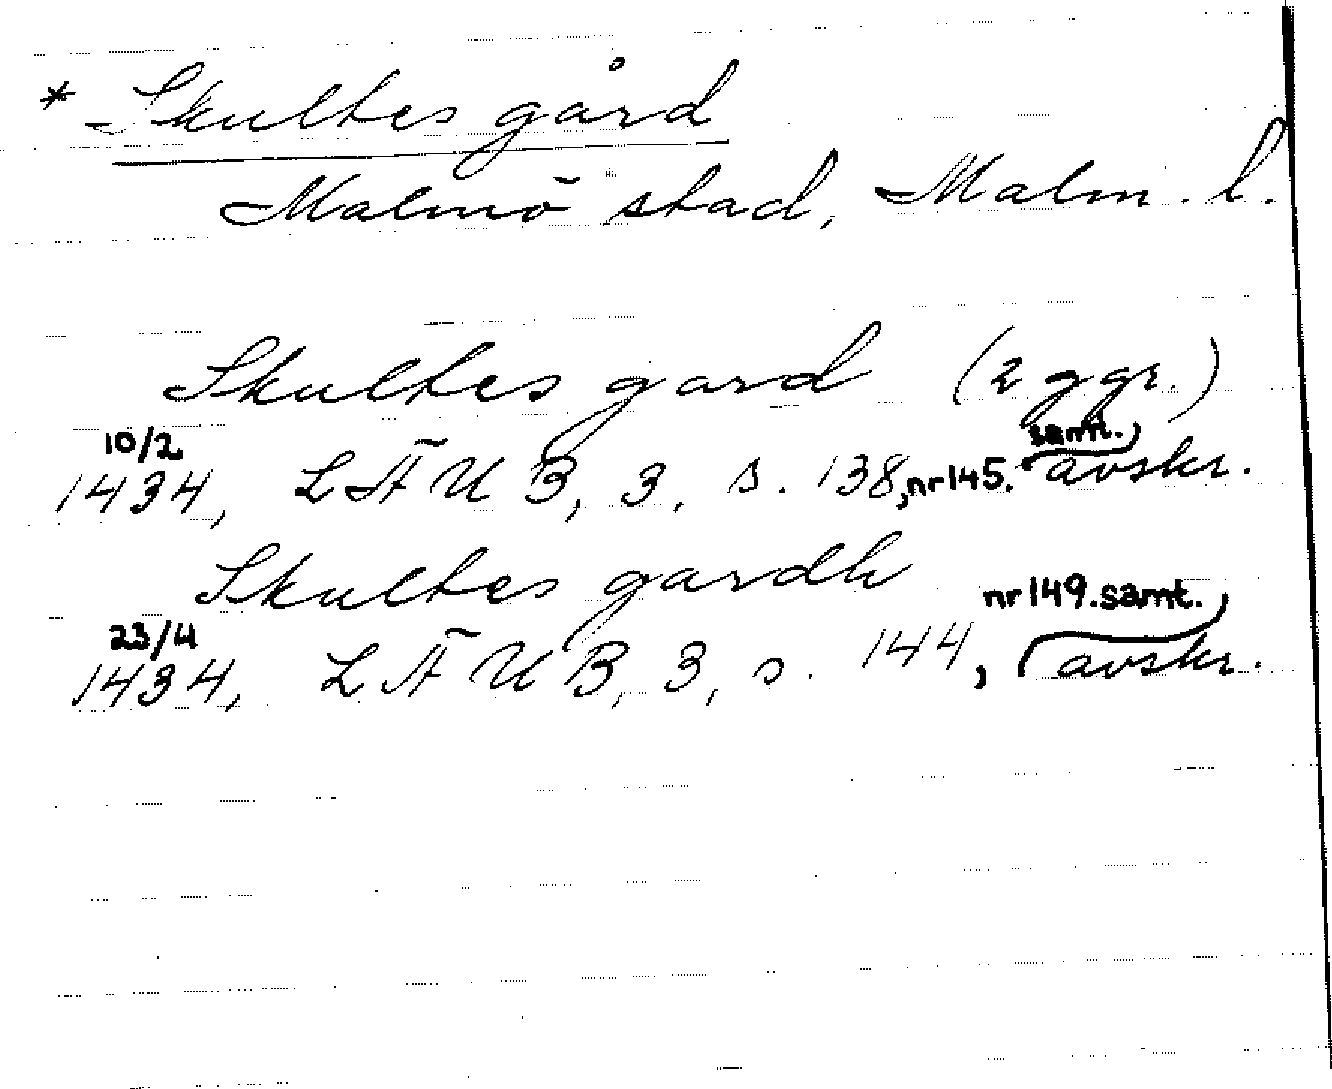 * Skultes gård
Malmö stad, Malm. l.
Skultes gard (2 ggr.)
10/2 samt.
1434, LÄUB, 3, s. 138, nr 145. avskr.
Skultes gardh
23/4 nr 149. samt.
1434, LÄUB, 3, s. 144, avskr.